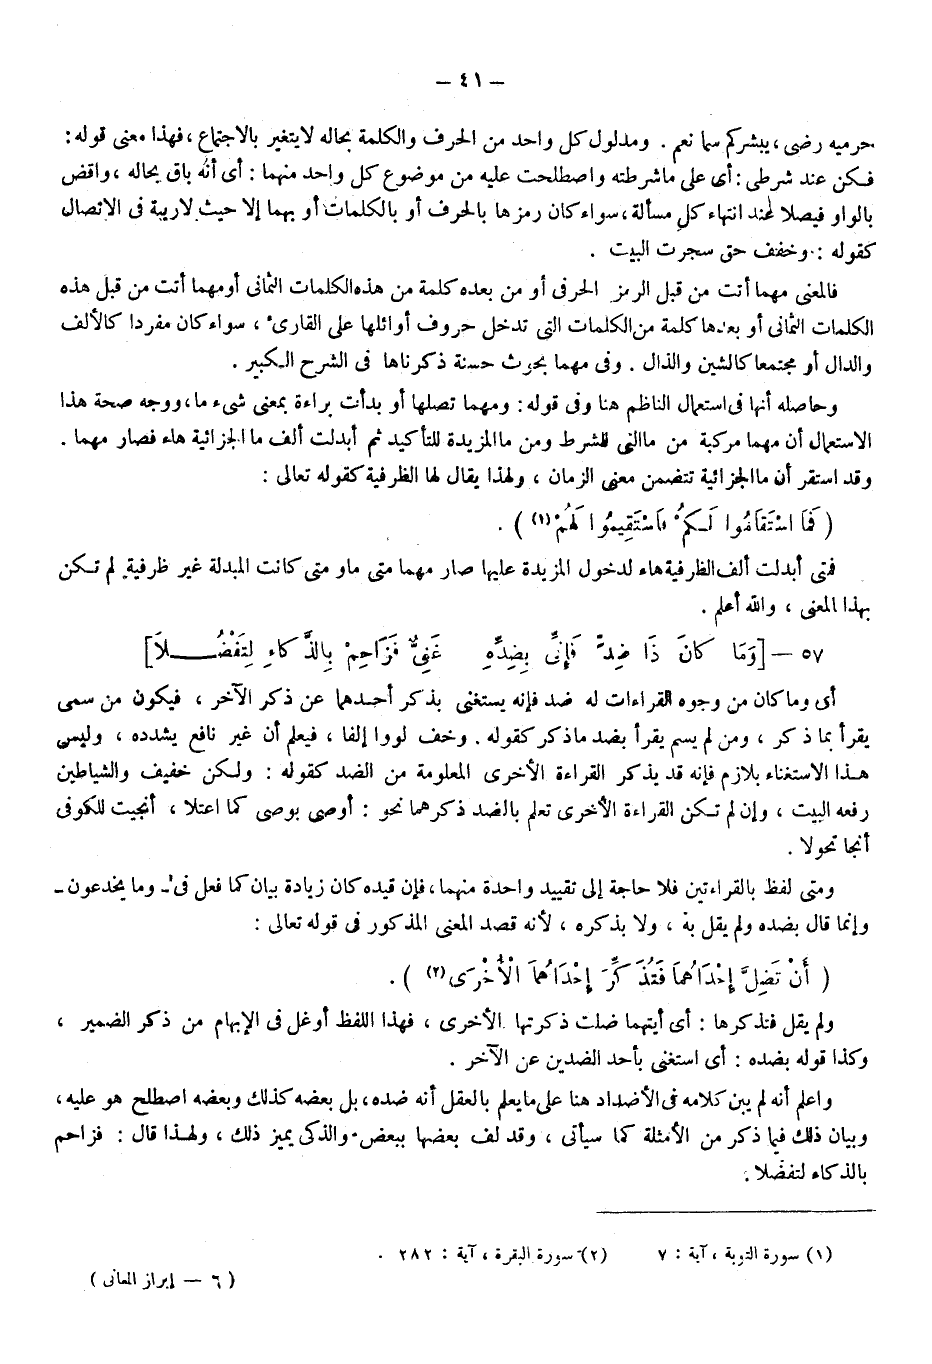 – ٤١ –
حرميه رضى ، يبشركم سما نعم . ومدلول كل واحد من الحرف والكلمة بحاله لايتغير بالاجتماع ، فهذا معنى قوله :
فـكن عند شرطى : أى على ماشرطته واصطلحت عليه من موضوع كل واحد منهما : أى أنه باق بحاله ، واقض
بالواو فيصلا عند انتهاء كل مسألة ، سواء كان رمزها بالحرف أو بالكلمات أو بهما إلا حيث لاريبة فى الاتصال
كقوله : وخفف حق سجرت البيت .
فالمعنى مهما أتت من قبل الرمز الحرفى أو من بعده كلمة من هذه الكلمات الثمانى أو مهما أتت من قبل هذه
الكلمات الثمانى أو بعدها كلمة من الكلمات التى تدخل حروف أوائلها على القارئ ، سواء كان مفردا كالألف
والدال أو مجتمعا كالشين والذال . وفى مهما بحوث حسنة ذكرناها فى الشرح الـكبير .
وحاصله أنها فى استعمال الناظم هنا وفى قوله : ومهما تصلها أو بدأت براءة بمعنى شىء ما ، ووجه صحة هذا
الاستعمال أن مهما مركبة من ما التى للشرط ومن ما المزيدة للتأكيد ثم أبدلت ألف ما الجزائية هاء فصار مهما .
وقد استقر أن ما الجزائية تتضمن معنى الزمان ، ولهذا يقال لها الظرفية كقوله تعالى :
( فَمَا اسْتَقَامُوا لَـكُمْ فَاسْتَقِيمُوا لَهُمْ(١) ) .
فمتى أبدلت ألف الظرفية هاء لدخول المزيدة عليها صار مهما متى ما و متى كانت المبدلة غير ظرفية لم تـكن
بهذا المعنى ، والله أعلم .
٥٧ – [وَمَا كَانَ ذَا ضِدٍّ فَإِنِّى بِضِدِّهِ غَنِىٌّ فَزَاحِمْ بِالذَّكَاءِ لِتَفْضُـــلَا]
أى وما كان من وجوه القراءات له ضد فإنه يستغنى بذكر أحـدهما عن ذكر الآخر ، فيكون من سمى
يقرأ بما ذكر ، ومن لم يسم يقرأ بضد ماذكر كقوله . وخف لووا إلفا ، فيعلم أن غير نافع يشدده ، وليس
هـذا الاستغناء بلازم فإنه قد يذكر القراءة الأخرى المعلومة من الضد كقوله : ولـكن خفيف والشياطين
رفعه البيت ، وإن لم تـكن القراءة الأخرى تعلم بالضد ذكرهما نحو : أوصى بوصى كما اعتلا ، أنجيت للكوفى
أنجا تحولا .
ومتى لفظ بالقراءتين فلا حاجة إلى تقييد واحدة منهما ، فإن قيده كان زيادة بيان كما فعل فى - وما يخدعون -
وإنما قال بضده ولم يقل به ، ولا بذكره ، لأنه قصد المعنى المذكور فى قوله تعالى :
( أَنْ تَضِلَّ إِحْدَاهُمَا فَتُذَكِّرَ إِحْدَاهُمَا الْأُخْرَى(٢) ) .
ولم يقل فتذكرها : أى أيتهما ضلت ذكرتها الأخرى ، فهذا اللفظ أوغل فى الإبهام من ذكر الضمير ،
وكذا قوله بضده : أى استغنى بأحد الضدين عن الآخر .
واعلم أنه لم يبن كلامه فى الأضداد هنا على مايعلم بالعقل أنه ضده ، بل بعضه كذلك وبعضه اصطلح هو عليه ،
وبيان ذلك فيما ذكر من الأمثلة كما سيأتى ، وقد لف بعضها ببعض والذكى يميز ذلك ، ولهـذا قال : فزاحم
بالذكاء لتفضلا .
(١) سورة التوبة ، آية : ٧ (٢) سورة البقرة ، آية : ٢٨٢ .
( ٦ – إبراز المعانى )